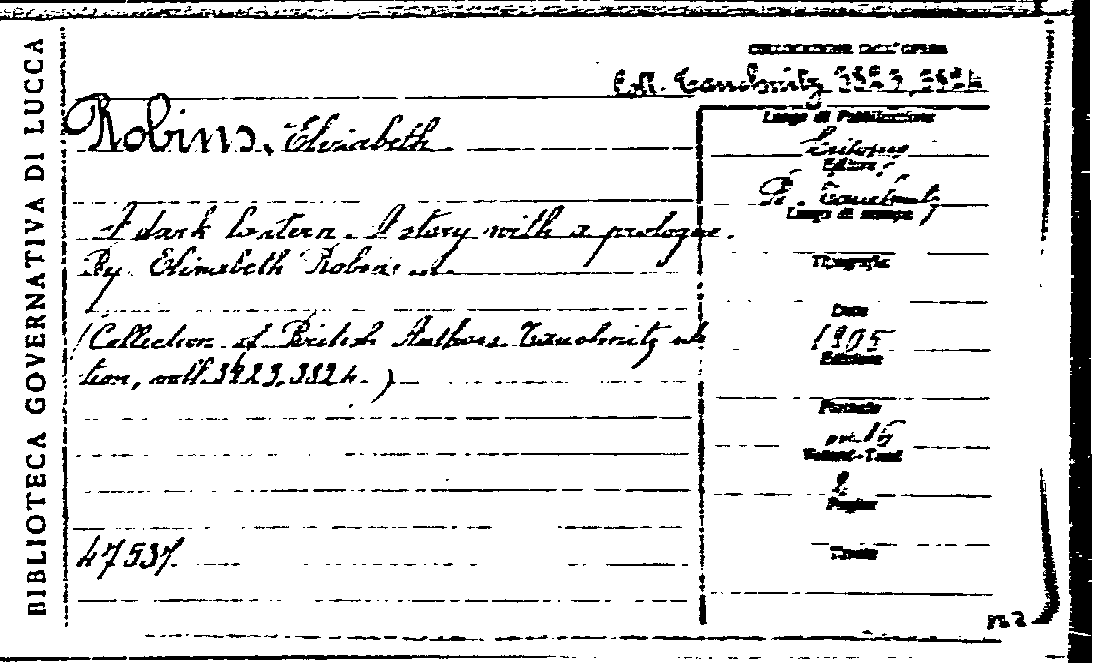 BIBLIOTECA GOVERNATIVA DI LUCCA
COLLOCAZIONE DELL'OPERA
Coll. Tauchnitz 3823, 3824
Robins, Elizabeth
Luogo di Pubblicazione
Editore
B. Tauchnitz
Luogo di stampa
A dark lantern. A story with a prologue.
By Elizabeth Robins
Tipografia
Data
1905
Edizione
(Collection of British Authors Tauchnitz edi
tion, voll. 3823, 3824.)
Formato
in 16
Volumi - Tomi
2
Pagine
47537